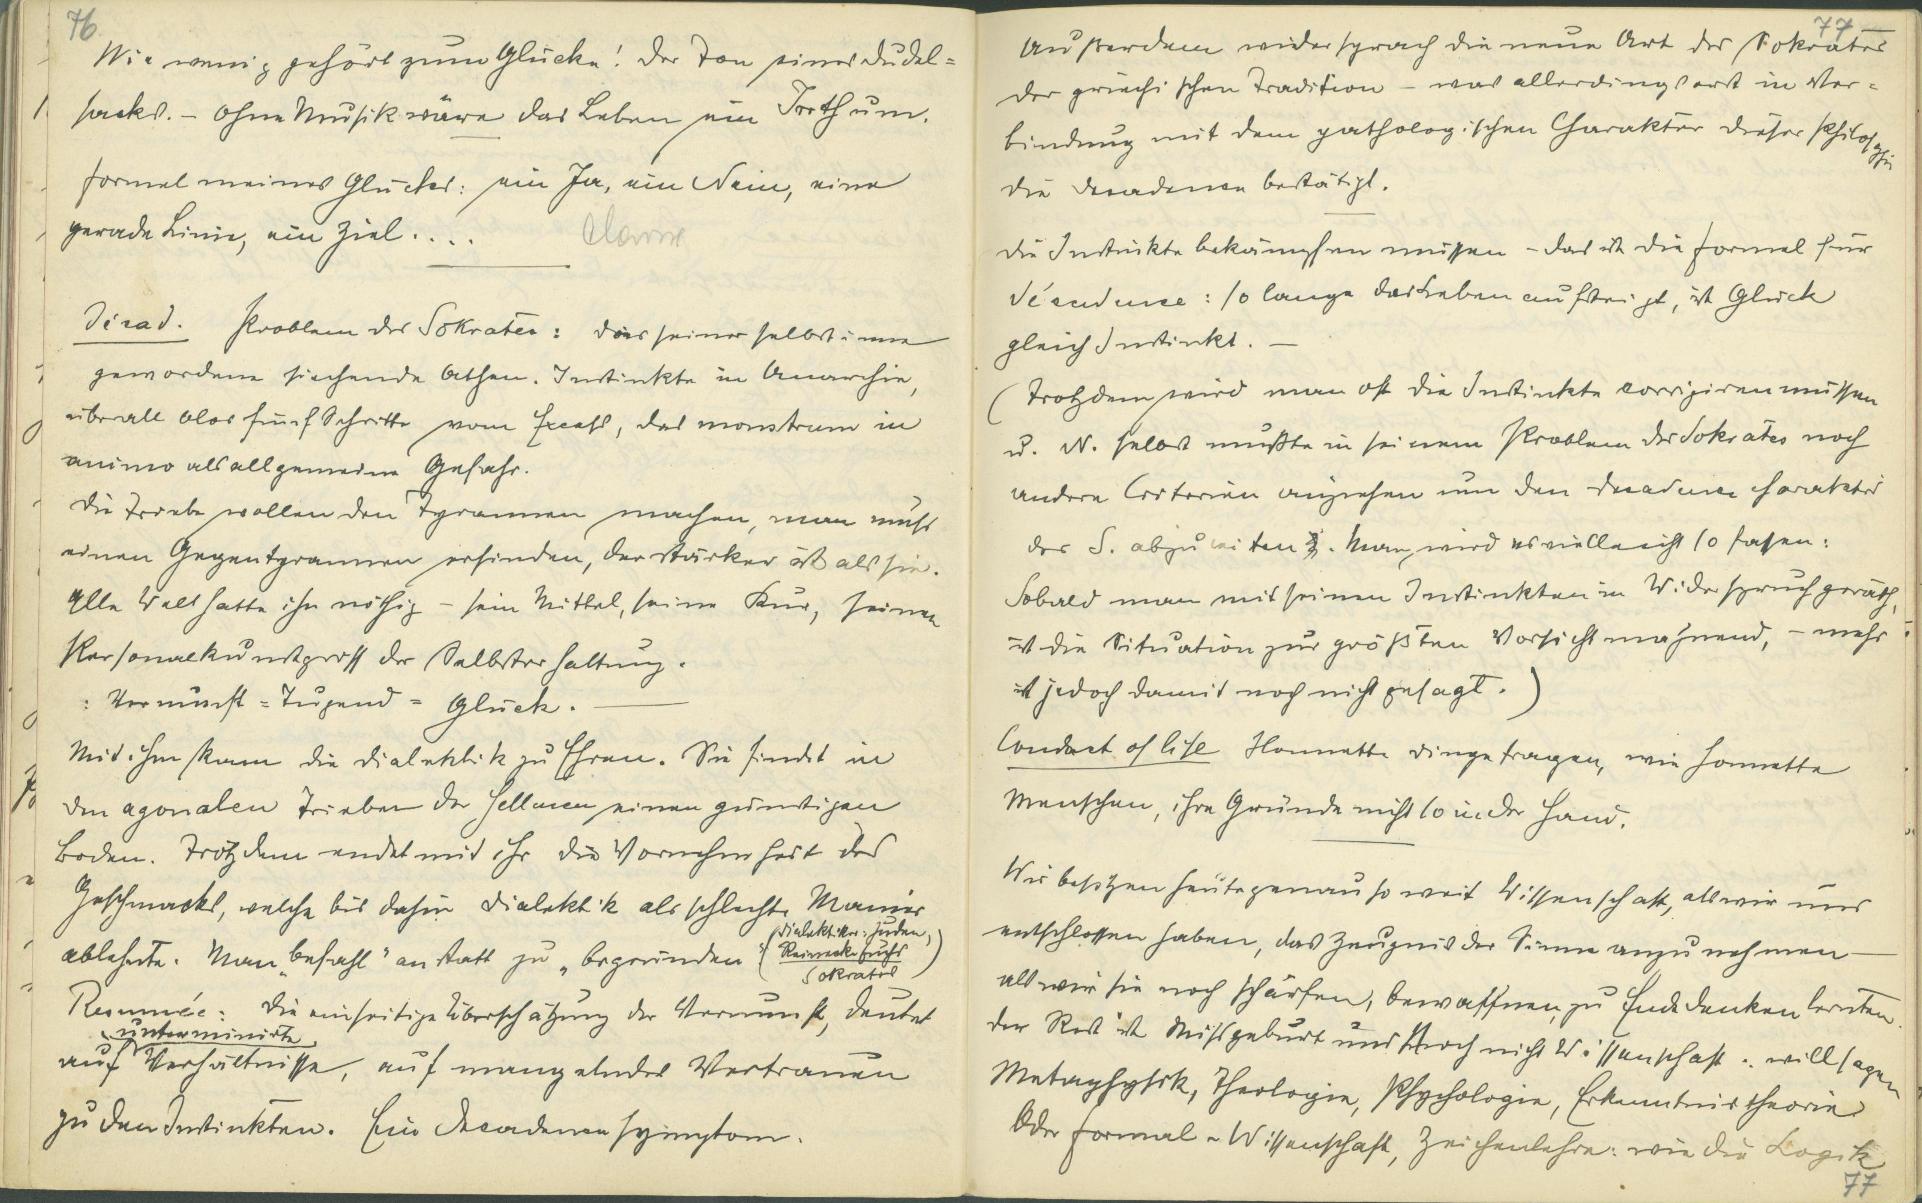 76
Wie wenig gehört zum Glücke! Der Ton eines Dudel=
sacks. – Ohne Musik wäre das Leben ein Irrthum.
Formel meines Glückes: ein Ja, ein Nein, eine
gerade Linie, ein Ziel....
Décad. Problem des Sokrates: das seiner selbst inne
gewordene siechende Athen. Instinkte in Anarchie,
überall blos fünf Schritte vom Excess, das monstrum in
animo als allgemeine Gefahr.
Die Triebe wollen den Tyrannen machen, man muss
einen Gegentyrannen erfinden, der stärker ist als sie.
Alle Welt hatte ihn nöthig – sein Mittel, seine Kur, seinen
Personalkunstgriff der Selbsterhaltung.
: Vernunft = Tugend = Glück.
Mit ihm kam die Dialektik zu Ehren. Sie findet in
den agonalen Trieben der Hellenen einen günstigen
Boden. Trotzdem endet mit ihr die Vornehmheit des
Geschmacks, welche bis dahin Dialektik als schlechte Manier
ablehnte. Man „befahl" anstatt zu „begründen" (Dialektiker: Juden,
Reinecke Fuchs
Sokrates)
Resumée: Die einseitige Überschätzung der Vernunft, deutet
unterminirte
auf Verhältnisse, auf mangelndes Vertrauen
zu den Instinkten. Ein Decadencesymptom.
77
Außerdem widersprach die neue Art des Sokrates
der griechischen Tradition – was allerdings erst in Ver=
bindung mit dem pathologischen Charakter dieser Philosophie
die Decadence bestätigt.
Die Instinkte bekämpfen müssen – das ist die Formel für
décadence: so lange das Leben aufsteigt, ist Glück
gleich Instinkt. –
(Trotzdem wird man oft die Instinkte corrigiren müssen
u. N. selbst mußte in seinem Problem des Sokrates noch
andere Criterien anziehen um den decadence charakter
des S. abzuleiten. Man wird es vielleicht so fassen:
Sobald man mit seinen Instinkten in Widerspruch geräth,
ist die Situation zur größten Vorsicht mahnend, – mehr
ist jedoch damit noch nicht gesagt.)
Conduct of life Honnette Dinge tragen, wie honnette
Menschen, ihre Gründe nicht so in der Hand.
Wir besitzen heute genau so weit Wissenschaft, als wir uns
entschlossen haben, das Zeugnis der Sinne anzunehmen –
als wir sie noch schärfen, bewaffnen, zu Ende denken lernten.
Der Rest ist Missgeburt und noch nicht Wissenschaft: will sagen
Metaphysik, Theologie, Psychologie, Erkenntnistheorie
Oder Formal-Wissenschaft, Zeichenlehre: wie die Logik
77